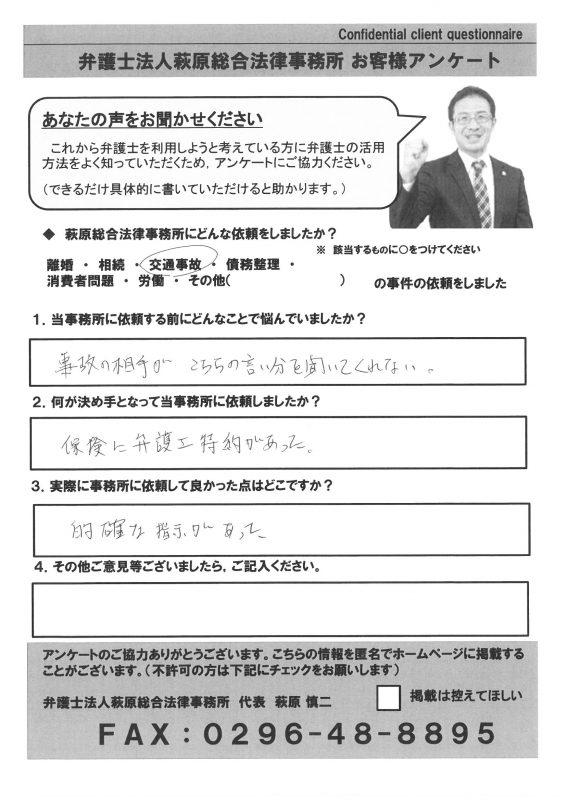 Confidential client questionnaire
弁護士法人萩原総合法律事務所 お客様アンケート
あなたの声をお聞かせください
これから弁護士を利用しようと考えている方に弁護士の活用
方法をよく知っていただくため，アンケートにご協力ください。
（できるだけ具体的に書いていただけると助かります。）
◆ 萩原総合法律事務所にどんな依頼をしましたか？
※ 該当するものに○をつけてください
離婚 ・ 相続 ・ 交通事故 ・ 債務整理 ・
消費者問題 ・ 労働 ・ その他( ) の事件の依頼をしました
１．当事務所に依頼する前にどんなことで悩んでいましたか？
事故の相手が こちらの言い分を聞いてくれない。
２．何が決め手となって当事務所に依頼しましたか？
保険に弁護士特約があった。
３．実際に事務所に依頼して良かった点はどこですか？
的確な指示があった
４．その他ご意見等ございましたら，ご記入ください。
アンケートのご協力ありがとうございます。こちらの情報を匿名でホームページに掲載する
ことがございます。（不許可の方は下記にチェックをお願いします）
弁護士法人萩原総合法律事務所 代表 萩原 慎二
掲載は控えてほしい
ＦＡＸ：０２９６－４８－８８９５